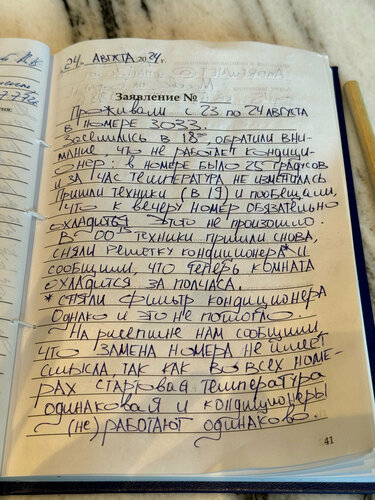 24 АВГУСТА 2024 г.
Заявление №
ПРОЖИВАЛИ С 23 ПО 24 АВГУСТА
В НОМЕРЕ 3033.
ЗАСЕЛИЛИСЬ В 18⁰⁰, ОБРАТИЛИ ВНИ-
МАНИЕ, ЧТО НЕ РАБОТАЕТ КОНДИЦИ-
ОНЕР: В НОМЕРЕ БЫЛО 25 ГРАДУСОВ
И ЗА ЧАС ТЕМПЕРАТУРА НЕ ИЗМЕНИЛАСЬ
ПРИШЛИ ТЕХНИКИ (В 19) И ПООБЕЩАЛИ,
ЧТО К ВЕЧЕРУ НОМЕР ОБЯЗАТЕЛЬНО
ОХЛАДИТЬСЯ. ЭТОГО НЕ ПРОИЗОШЛО.
В 00⁰⁰ ТЕХНИКИ ПРИШЛИ СНОВА,
СНЯЛИ РЕШЕТКУ КОНДИЦИОНЕРА* И
СООБЩИЛИ, ЧТО ТЕПЕРЬ КОМНАТА
ОХЛАДИТСЯ ЗА ПОЛЧАСА.
* СНЯЛИ ФИЛЬТР КОНДИЦИОНЕРА
ОДНАКО И ЭТО НЕ ПОМОГЛО.
НА РИСЕПШНЕ НАМ СООБЩИЛИ,
ЧТО ЗАМЕНА НОМЕРА НЕ ИМЕЕТ
СМЫСЛА, ТАК КАК ВО ВСЕХ НОМЕ-
РАХ СТАРТОВАЯ ТЕМПЕРАТУРА
ОДИНАКОВАЯ И КОНДИЦИОНЕРЫ
(НЕ) РАБОТАЮТ ОДИНАКОВО.
41